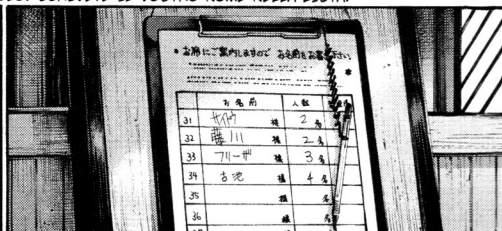 お席にご案内しますので お名前をお書き下さい。
お名前 人数
31 サイトウ 様 2名
32 藤川 様 2名
33 フリーザ 様 3名
34 古池 様 4名
35 様 名
36 様 名